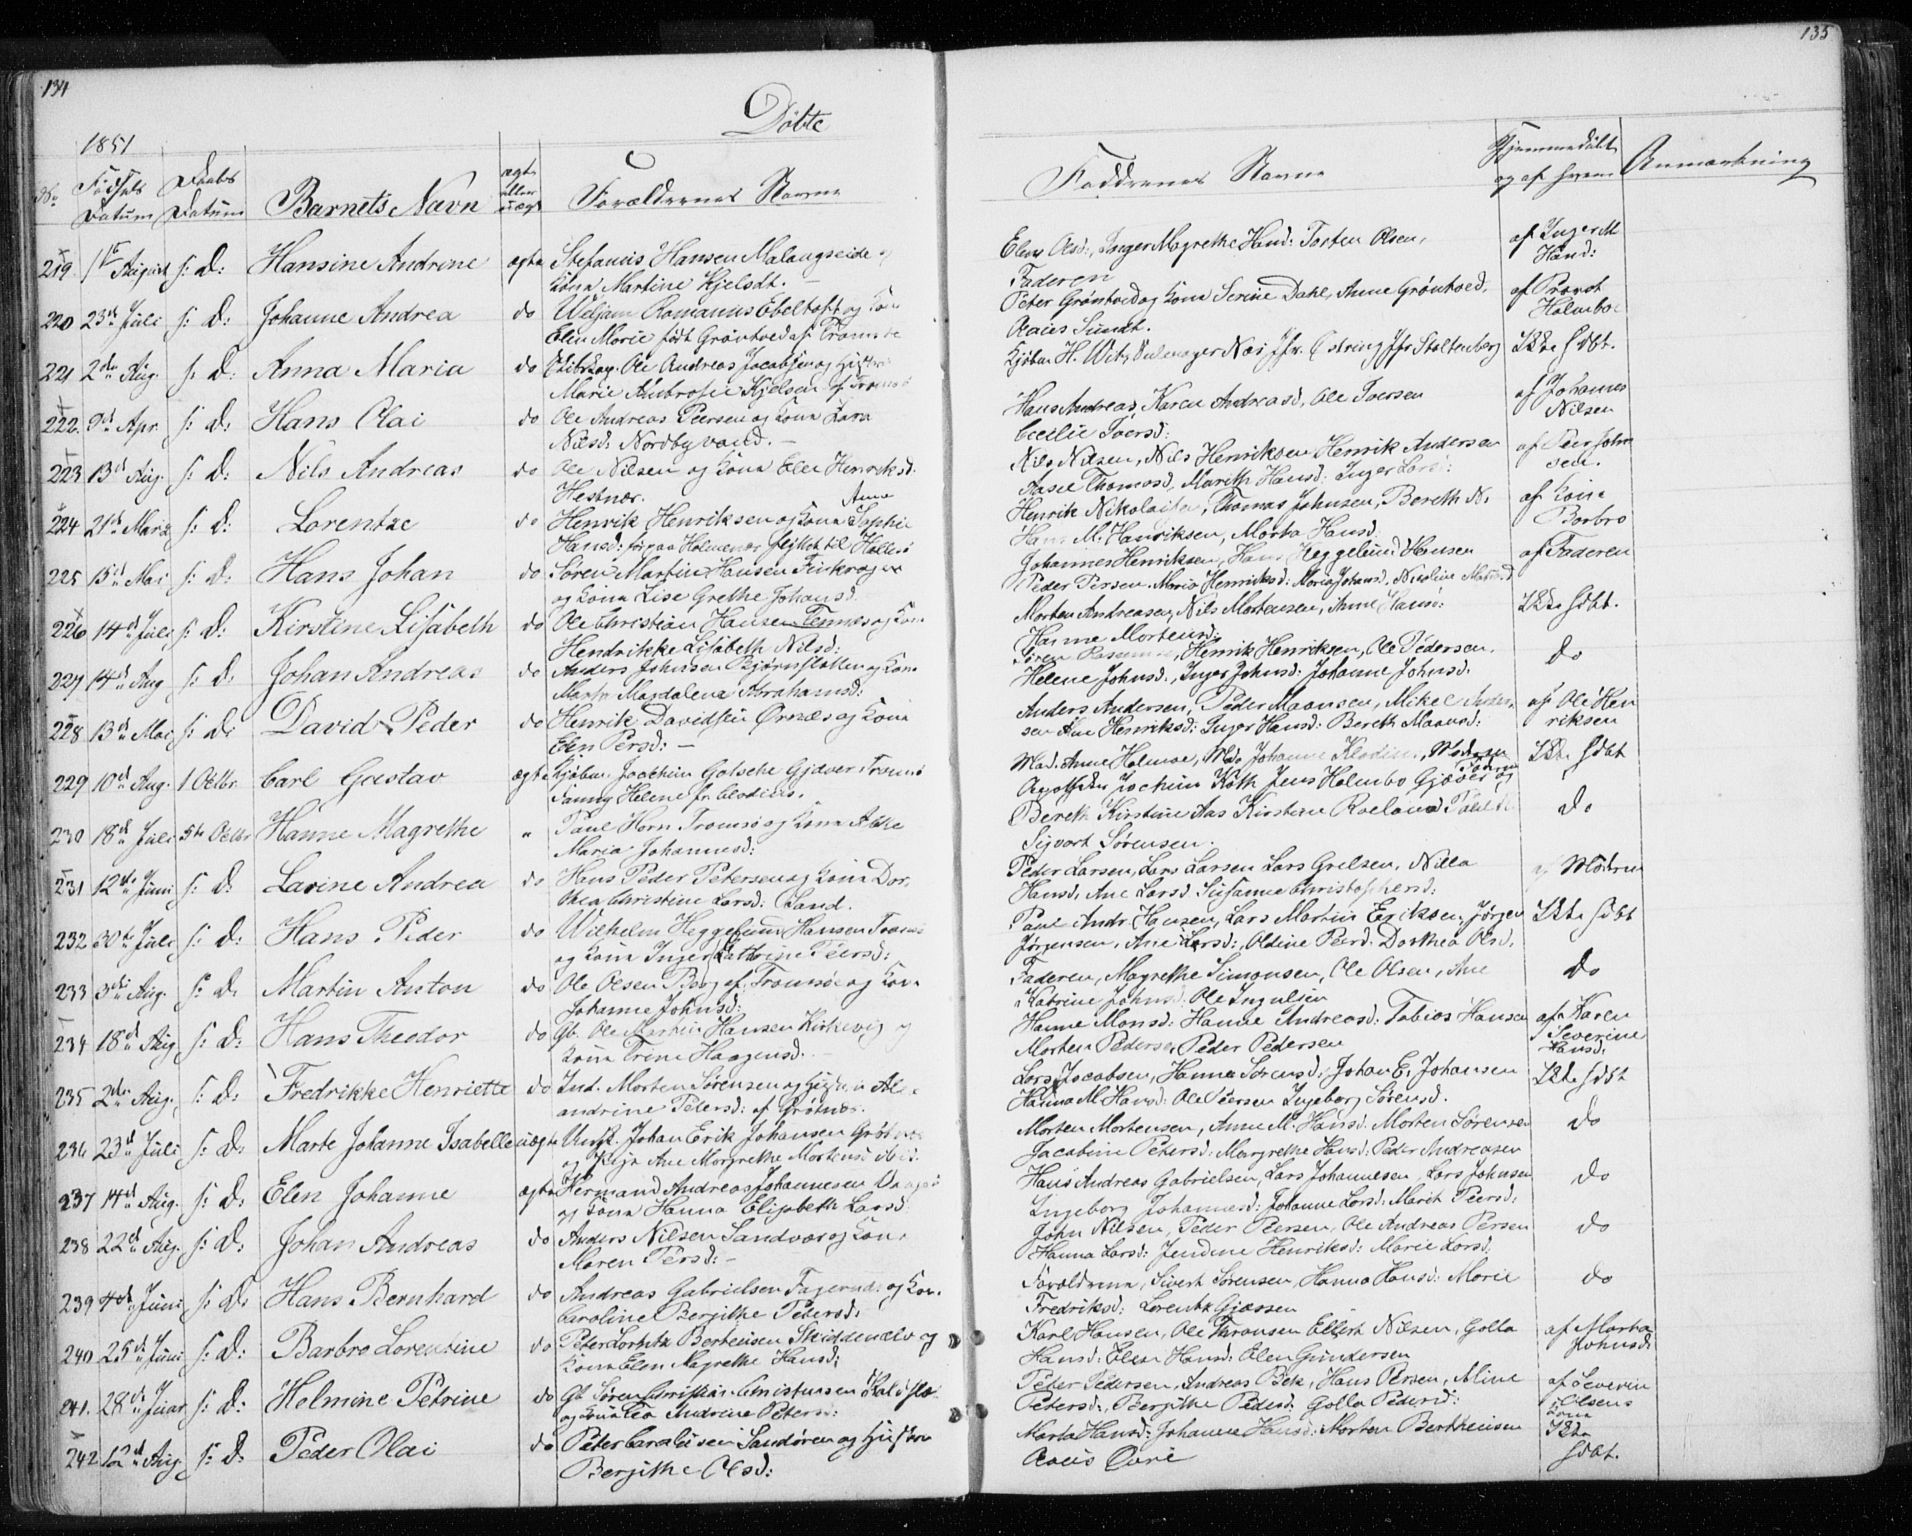 134
Döbte
1851
No Födsels Datum Daabs Datum Barnets Navn ægte eller uægte Forældrenes Navne
219. 1ste August s: D: Hansine Andrine ægte Stefanus Hansen Malangseide og
Kona Martine Kjelsdt. —
220 23de Juli s: D: Johanne Andrea do Weljam Romanus Ebeltoft og Kon
Elen Marie född Gröntved af Tromsöe
221 2den Aug. s: D: Anna Maria do Ole Andreas Jacobsen og Hustru
Marie Ambrosie Kjelsen af Tromsö
222. 9de Apr s: D: Hans Olai do Ole Andreas Peersen og Kona Sara
Nilsd: Nordbyvand. —
223 13de Aug. s: D: Nils Andreas do Ole Nilsen og Kona Elen Henriksd.
Hestnær.
224 21de Marz s: D: Lorentze do Henrik Henriksen og Kona Anna Sophie
Hansd: før paa Holmenær flyttet til
225 15de Mai s: D: Hans Johan do Sören Martin Hansen Finkrogen
og Kona Lise Grethe Johansd
226 14de Juli s: D: Kirstine Lisabeth do Ole Christian Hansen Tennes og Kon
Hendrikke Lisabeth Nilsd:
227 14de Aug s: D: Johan Andreas do Anders Johnsen Bjørnsletten og Kon
Marth Magdalena Abrahamsd:
228 13de Mai s: D: David Peder do Henrik Davidsen Ørnæs og Kona
Elen Persd: —
229 10de Aug. 1 Octbr Carl Gustav ægte Kjøbm. Joachim Gotsche Gjæver Tromsö
Fanny Helene f.
230 18de Juli 5te Octbr Hanne Magrethe " Paul Horn Tromsö og Kona
Maria Johannesd:
231 12te Juni s: D: Lavine Andrea do Hans Peder Petersen og Kona Dor
thea Christine Larsd: Sand.
232 30te Juli s: D: Hans Peder do Wilhelm Heggelund Hansen Tromsö
og Kona Inger Cathrine Peersd:
233 3die Aug. s: D: Martin Anton do Ole Olsen Berg af Tromsöe og Kon
Johanne Johnsd:
234 18de Aug s: D: Hans Theodor do Gb. Ole Martin Hansen Kirkevig og
Kona Trine Haagensd.
235 2den Aug. s: D: Fredrikke Henriette do Ind. Morten Sørensen og Hustru Al
andrine Petersd: af Grötnæs.
236 23de Juli s: D: Marte Johanne Isabelle uægte Ungk. Johan Erik Johansen Gröt
og Pige Ane Margrethe Mortensd ibid.
237 14de Aug. s: D: Elen Johanne ægte Hermand Andreas Johannesen
og Kona Hanna Elisabeth Larsd
238 22de Aug. s: D: Johan Andreas do Anders Nilsen Sandvær og Kon.
Maren Persd: —
239 4de Juni s: D: Hans Bernhard do Andreas Gabrielsen Fagernæs og Kon.
Caroline Bergithe Petersd:
240 25de Juni s: D: Barbro Lorentine do Peter Lorentz Berthensen Skiddenælv og
Kona Elen Magrethe Hansd:
241. 28de Juni s: D: Helmine Petrine do Gb. Sören Christian Christensen
og Kona Lea Andrine Petersd:
242 12de Aug. s: D: Peder Olai do Peter Caralusen Sandøren og Hustru
Bergithe Olsd:
135
Faddernes Navne Hjemmedöbt og af hvem Anmærkning
Elen Olsd:, Inger Magrethe Hansd: Torsten Olsen, af Inger M
Faderen Hansd:
Peter Gröntved og Kona Serine Dahl, Anne Gröntved, af Provst
Claus Sundt. Holmboe
Kjøbm H. Wit, Jfr. Jfr Stoltenberg Ikke hdbt.
Hans Andreas, Karen Andreasd, Ole Toersen af Johannes
Cecilie Toersd: Nilsen
Nils Nilsen, Nils Henriksen Henrik Andersen af Peer John
Aase Thomasd, Marith Hansd: Inger Larsd: sen.
Henrik Nikolaisen, Thomas Johnsen, Bereth N. af Kone
Hans M. Henriksen, Martha Hansd. Barbro
Johannes Henriksen, Hans Heggelund Hansen af Faderen
Peder Persen. Maria Henriksd: Maria Johansd, Nicoline
Morten Andreasen, Nils Mortensen, Anne Hansd: Ikke hdbt.
Hanne Mortensd:
Sören, Henrik Henriksen, Ole Pedersen. do
Helene Johnsd:, Inger Johnsd: Johanne Johnsd:
Anders Andersen, Peder Maansen, Mikel Ander af Ole Hen
sen Ane Henriksd: Inger Hansd: Bereth Maansd: riksen
Mad. Anne Holmboe, Md Johanne, Madam Ikke hdbt
Jochim Koth Jens Holmbo Gjæver og
Bereth Kirstine Aas Kirstine Roeland Paul do
Sigvart Sørensen.
Peder Larsen, Lars Larsen Lars Grelsen, Nilla af Modren
Hansd, Ane Larsd Susanne Christophersd:
Paul Andr Hansen, Lars Martin Eriksen, Jörgen Ikke hdbt
Jørgensen, Ane Larsd:, Oldine Peersd. Dorthea Olsd,
Faderen, Magrethe Simonsen, Ole Olsen, Ane do
Katrine Johnsd. Ole Ingulsen
Hanne Monsd: Hanne Andreasd: Tobias Hansen af Karen
Morten Pedersen Peder Pedersen Severine
Hansd:
Lars Jacobsen, Hanna Sörensd, Johan E. Johansen Ikke hdbt
Hanna M. Hansd: Ole Peersen Ingeborg Sörensd.
Morten Mortensen, Anne M. Hansd. Morten Sørensen do
Jacobine Petersd: Margrethe Hansd: Peder Andreasen
Hans Andreas Gabrielsen, Lars Johannesen, Lars Johnsen do
Ingeborg Johannesd: Johanne Larsd: Marit Peersd,
John Nilsen, Peder Peersen, Ole Andreas Persen do
Hanna Larsd: Jendine Henriksd: Marie Larsd,
Forældrene, Sivert Sørensen, Hanna Hansd: Marie do
Fredriksd: Lorentz Gjæssen
Karl Hansen, Ole Thronsen Ellert Nilsen, Golla af Marta
Hansd: Elen Hansd: Elen Gundersen Johnsd:
Peter Pedersen, Andreas Bek, Hans Persen, Aline af Severin
Petersd:, Bergithe Pedersd: Golla Pedersd: Olsens
Kona
Marta Hansd: Johanne Hansd: Morten Berthensen Ikke
Claus Quré hdbt.